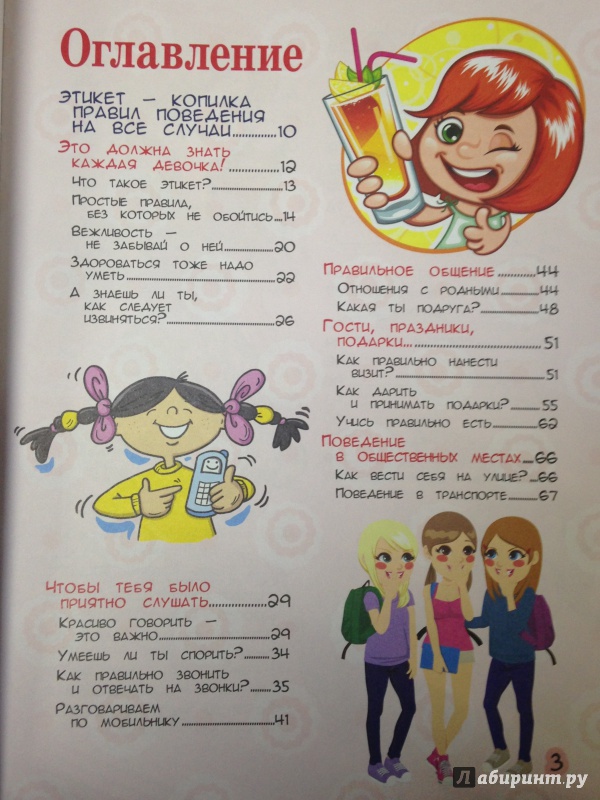 Оглавление
Этикет — копилка
правил поведения
на все случаи..............10
Это должна знать
каждая девочка! ..............12
Что такое этикет?..............13
Простые правила,
без которых не обойтись...14
Вежливость —
не забывай о ней..............20
Здороваться тоже надо
уметь..............22
А знаешь ли ты,
как следует
извиняться?..............26
Чтобы тебя было
приятно слушать..............29
Красиво говорить —
это важно..............29
Умеешь ли ты спорить?........34
Как правильно звонить
и отвечать на звонки?.......35
Разговариваем
по мобильнику..............41
Правильное общение ...........44
Отношения с родными..........44
Какая ты подруга?..............48
Гости, праздники,
подарки..............51
Как правильно нанести
визит?..............51
Как дарить
и принимать подарки?.......55
Учись правильно есть..........62
Поведение
в общественных местах...66
Как вести себя на улице?...66
Поведение в транспорте.......67
3
Лабиринт.ру